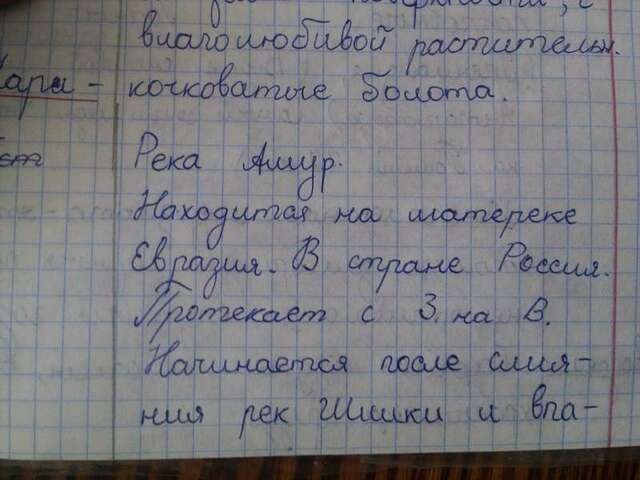 влаголюбивой растительн.
ари – кочковатые болота.
Река Амур.
Находится на матереке
Евразия. В стране Россия.
Протекает с З. на В.
Начинается после слия-
ния рек Шилки и впа-